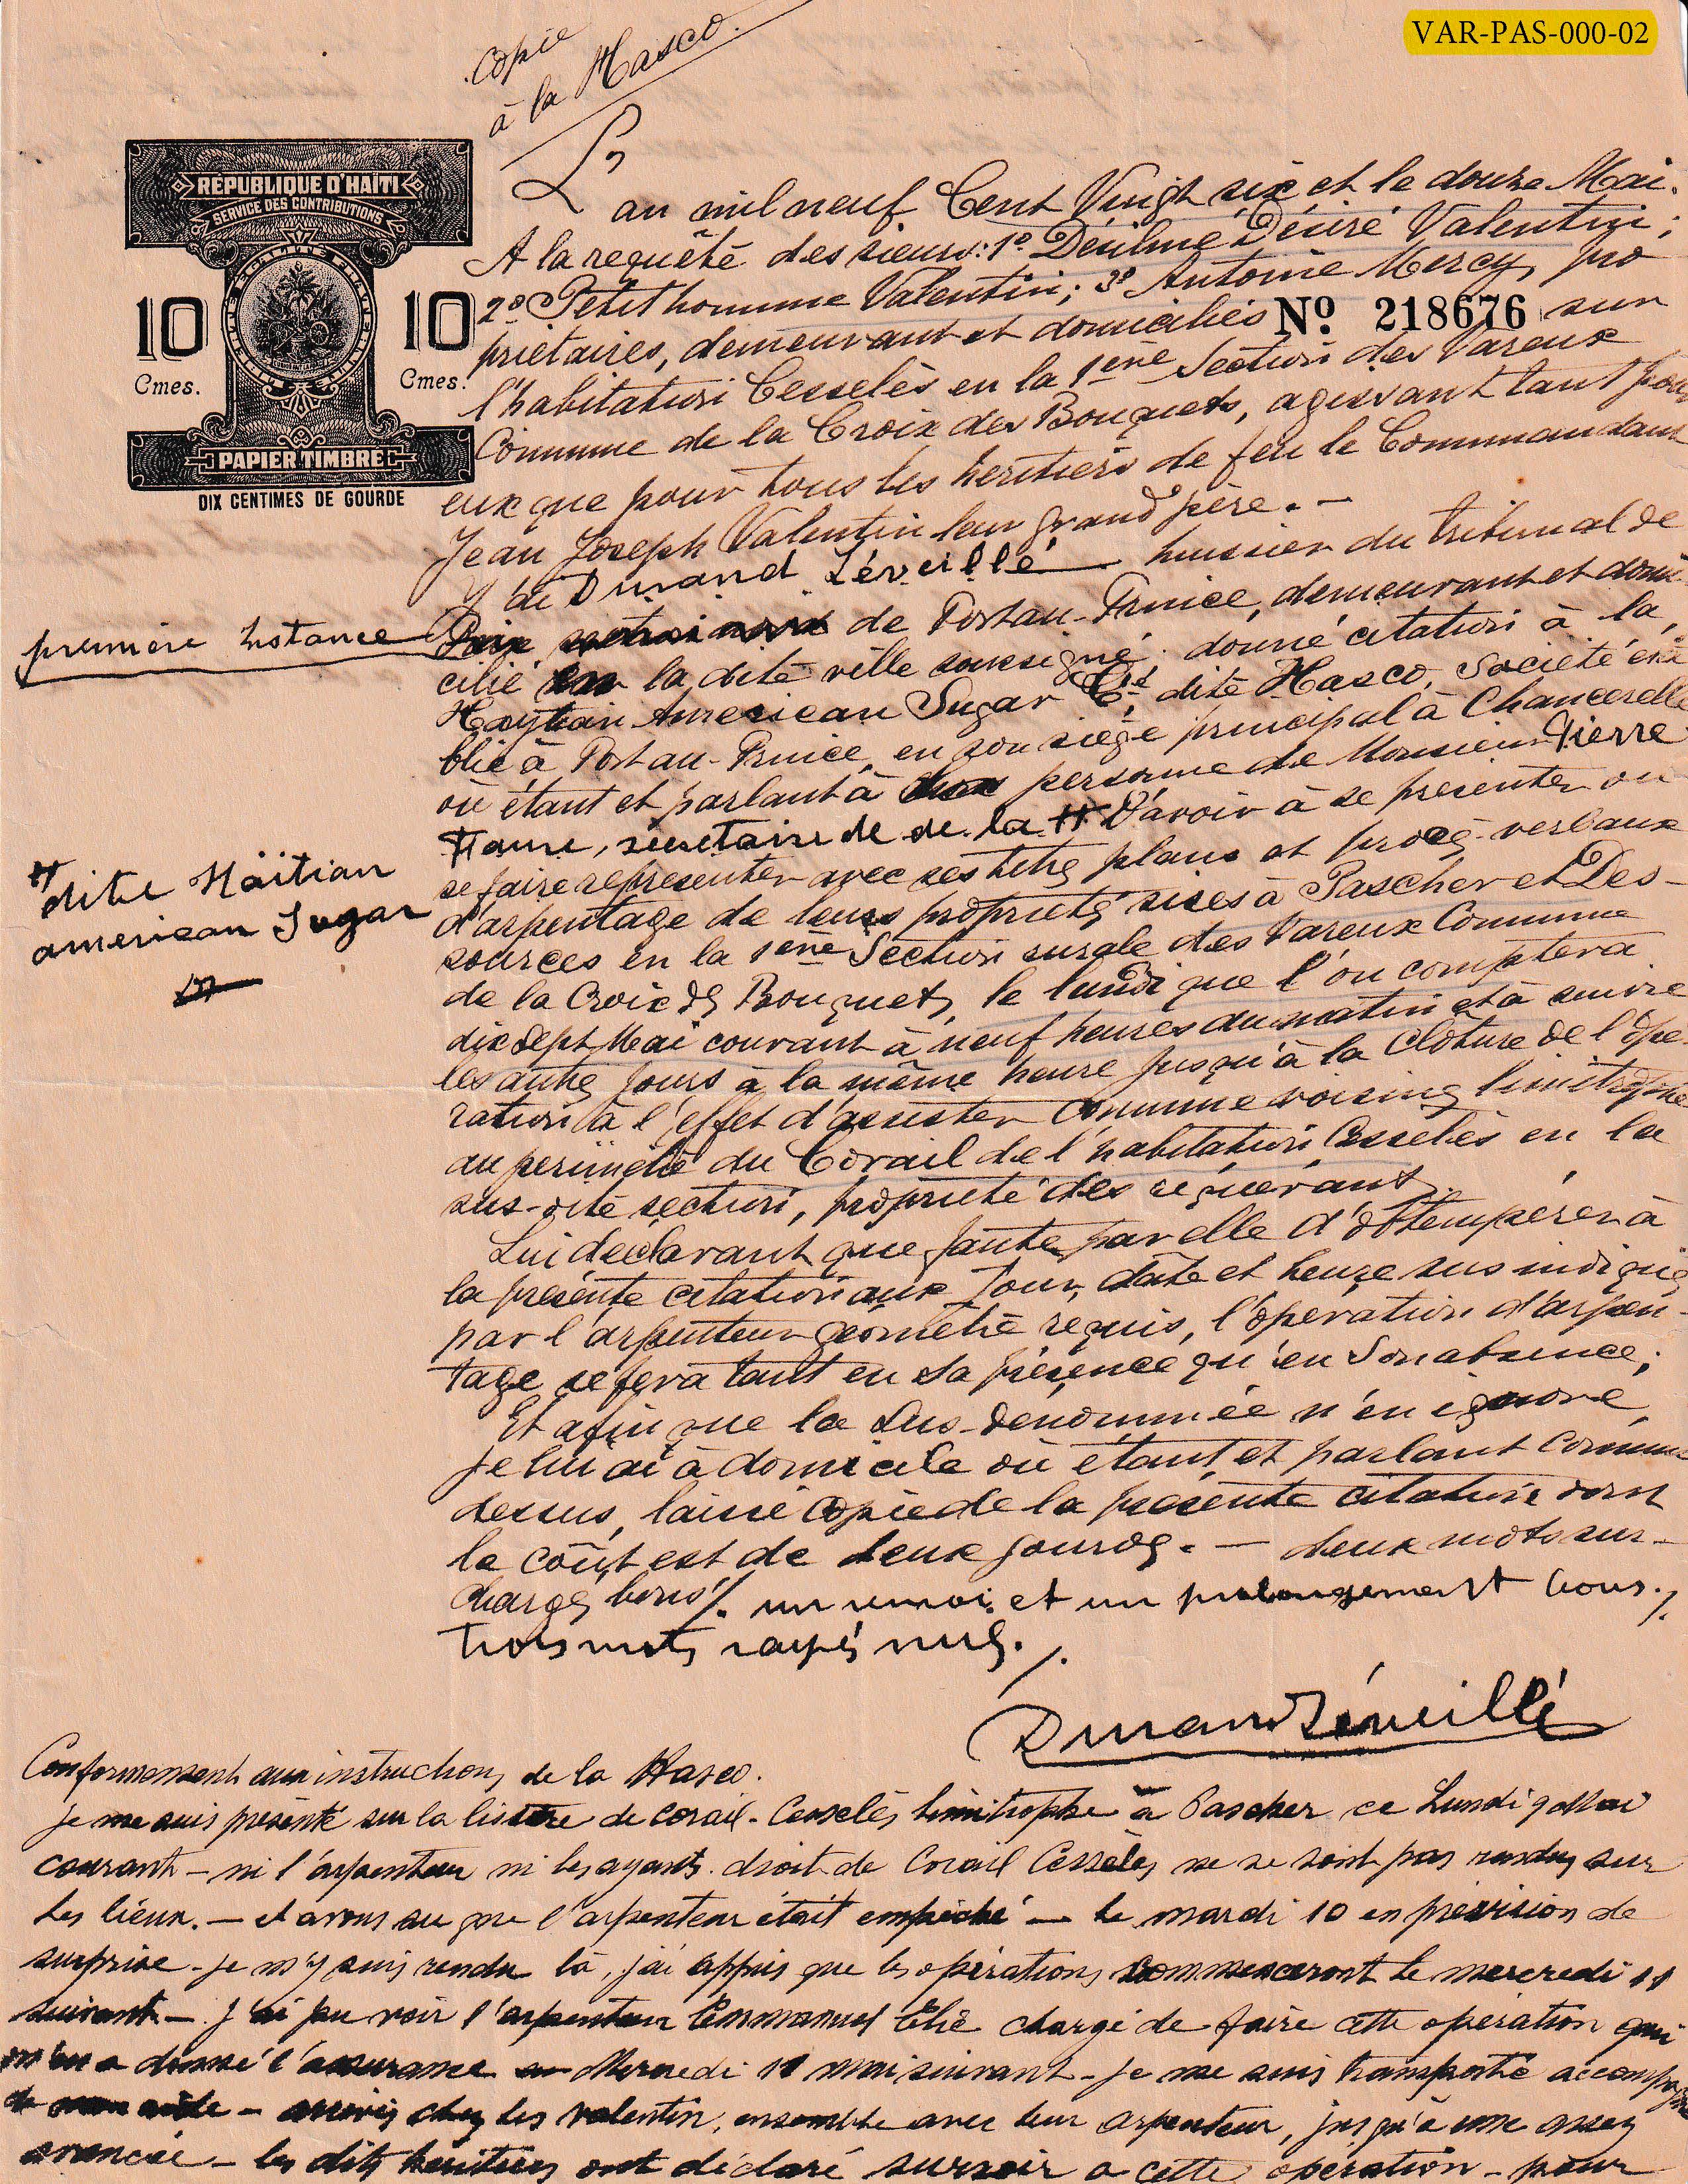 VAR-PAS-000-02
Copie
à la Hasco.
RÉPUBLIQUE D'HAÏTI
SERVICE DES CONTRIBUTIONS
10 10
Cmes. Cmes.
PAPIER TIMBRÉ
DIX CENTIMES DE GOURDE
Nº 218676
L'an mil neuf Cent Vingt six et le douze Mai.
A la requête des sieurs: 1º Désilmé Désiré Valentin;
2º Petit homme Valentin; 3º Antoine Mercy, pro
priétaires, demeurant et domiciliés sur
l'habitation Cesselès en la 1ère Section des Vareux
Commune de la Croix des Bouquets, agissant tant pour
eux que pour tous les héritiers de feu le Commandant
Jean Joseph Valentin leur grand père. —
Durand Léveillé huissier du tribunal de
première Instance
de Port au-Prince, demeurant et domi-
cilié la dite ville soussigné, donné citation à la
Haytian American Sugar Cº, dite Hasco, Société éta
blie à Port au-Prince, en son siège principal à Chancerelle
où étant et parlant à personne de Monsieur Pierre
secrétaire de de la # D'avoir à se présenter ou
# dite Haïtian
american Sugar
se faire représenter avec ses titres plans et procès-verbaux
d'arpentage de leurs propriétés sises à Pascher et Des-
sources en la 1ère Section rurale des Vareux Commune
de la Croix des Bouquets, le lundi que l'on comptera
dix sept Mai courant à neuf heures du matin et à suivre
les autres jours à la même heure jusqu'à la clôture de l'opé-
ration à l'effet d'assister comme voisins limitrophe
au périmètre du Corail de l'habitation Cesselès en la
sus-dite section, propriété des requérants.
Lui déclarant que faute par elle d'obtempérer à
la présente citation aux jour, date et heure sus indiqués
par l'arpenteur géomètre requis, l'opération d'arpen-
tage se fera tant en sa présence qu'en son absence;
Et afin que la sus-dénommée n'en ignore,
je lui ai à domicile où étant et parlant comme
dessus, laissé copie de la présente citation dont
le coût est de deux gourdes. — deux mots sur-
chargés bons /. un renvoi et un prolongement bons./
Trois mots rayés nuls. /.
Durand Léveillé
Conformement aux instructions de la Hasco.
je me suis présenté sur la lisière de corail-Cesselès limitrophe à Pascher ce Lundi 9 Mai
courant — ni l'arpenteur ni les ayants droit de Corail Cesselès ne se sont pas rendus sur
les lieux. — et avons su que l'arpenteur était empêché — le mardi 10 en prévision de
surprise - je m'y suis rendu là, j'ai appris que les opérations commenceront le mercredi 11
suivant — j'ai pu voir l'arpenteur Emmanuel Elie chargé de faire cette opération qui
m'en a donné l'assurance Mercredi 11 mai suivant - je me suis transporté accompagné
de mon aide - arrivés chez les valentin, ensemble avec leur arpenteur, jusqu'à une assez
avancée — les dits héritiers ont déclaré surseoir a cette opération - pour